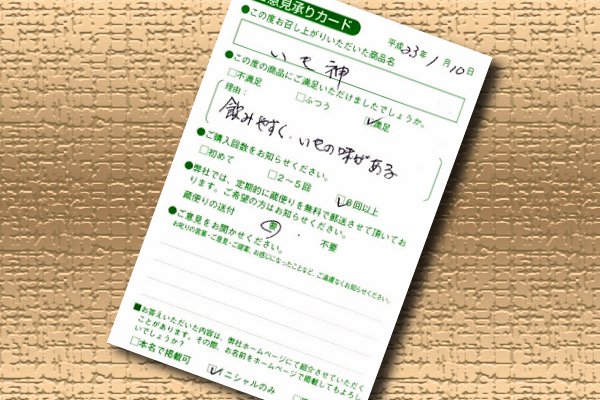 意見承りカード
平成23年1月10日
●この度お召し上がりいただいた商品名
いも神
●この度の商品にご満足いただけましたでしょうか。
□不満足 □ふつう ☑満足
理由：
飲みやすく、いもの味がある
●ご購入回数をお知らせください。
□初めて □2～5回 ☑6回以上
●弊社では、定期的に蔵便りを無料で郵送させて頂いてお
ります。ご希望の方はお知らせください。
蔵便りの送付 要 ・ 不要
●ご意見をお聞かせください。
お叱りの言葉・ご意見・ご提案、お感じになったことなど、ご遠慮なくお知らせください。
■お答えいただいた内容は、弊社ホームページにて紹介させていただく
ことがあります。その際、お名前をホームページで掲載してもよろし
いでしょうか？
□本名で掲載可 ☑イニシャルのみ